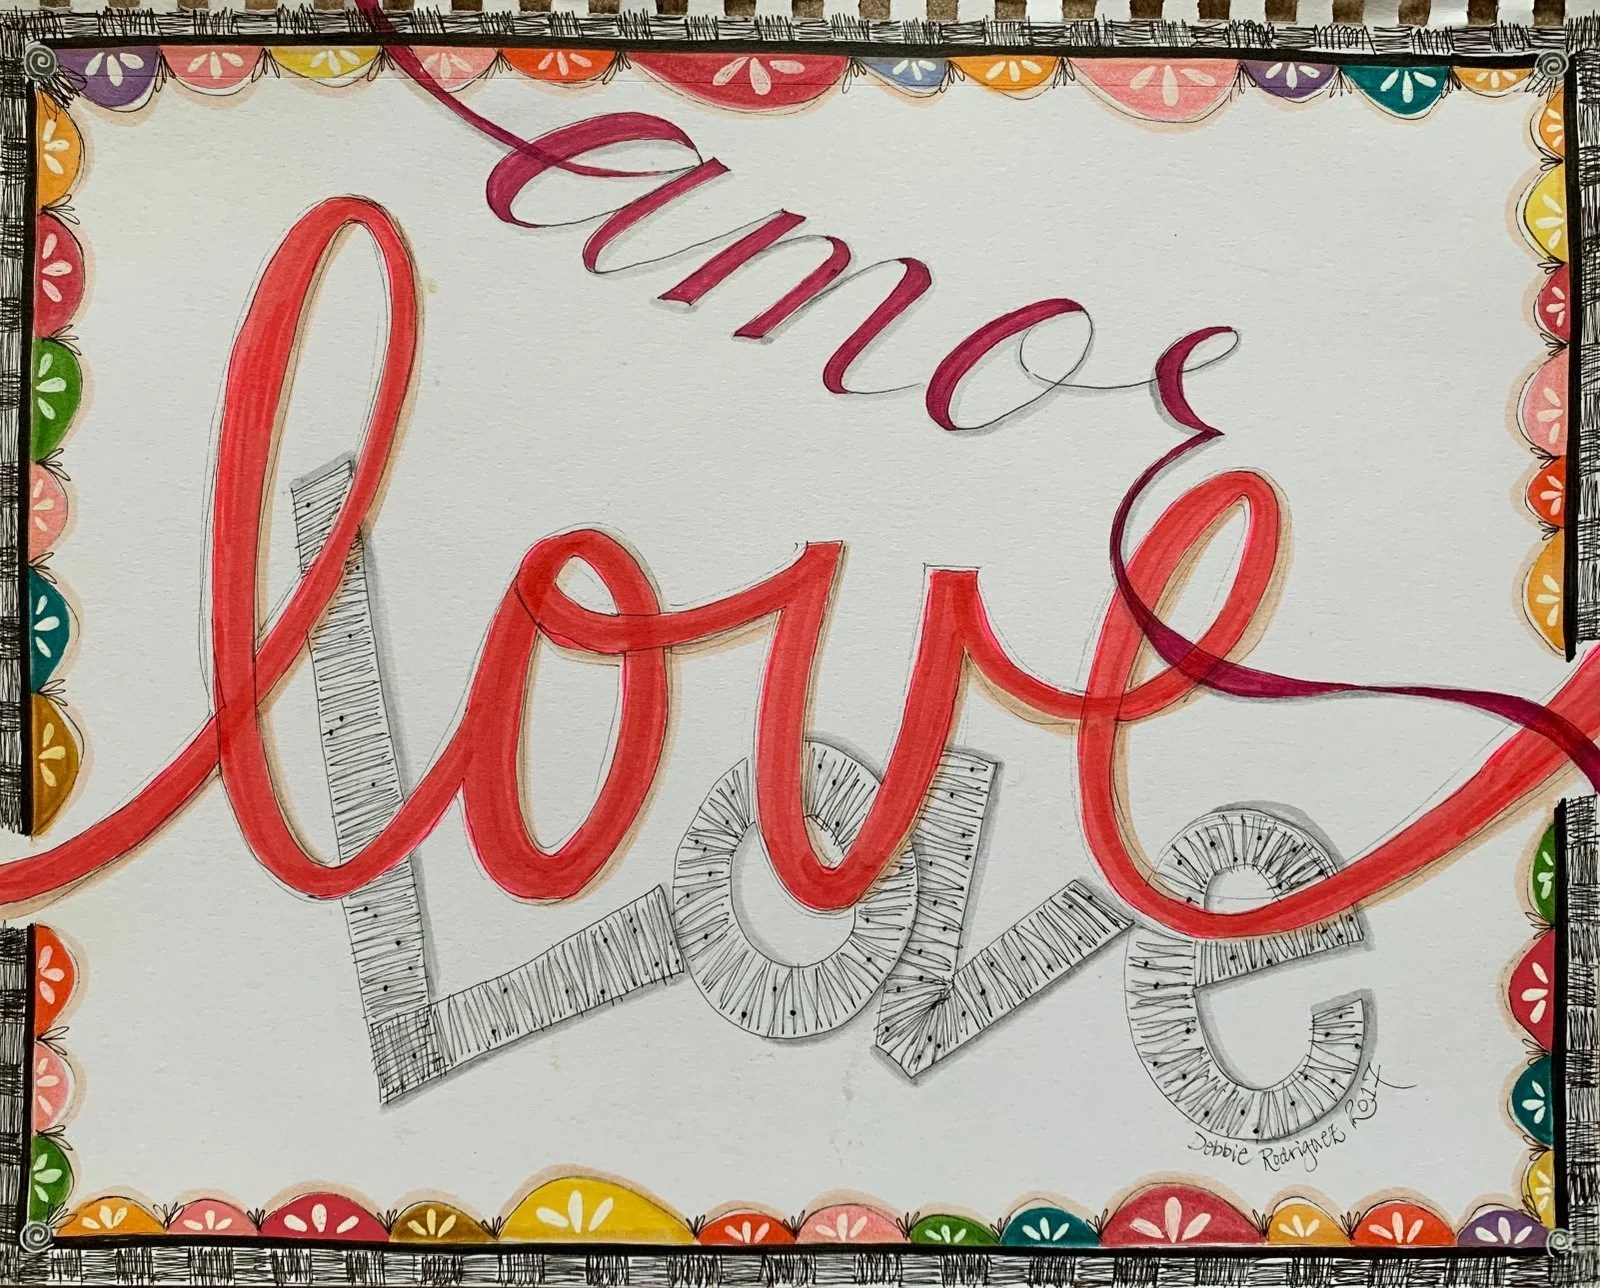 amor
love
Love
Debbie Rodriguez 2017